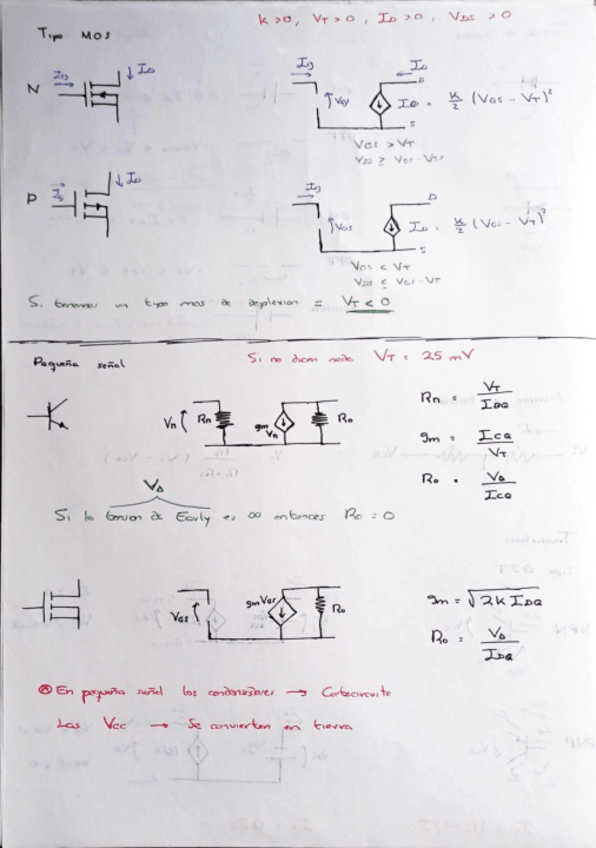 K>0, VT>0, ID>0, VDS>0
Tipo MOS
N
Ig
ID
Ig
ID
D
VGS
ID = K/2 (VGS - VT)²
S
VGS > VT
VDS ≥ VGS - VT
P
IG
ID
Ig
D
VGS
ID = K/2 (VGS - VT)²
S
VGS < VT
VDS ≤ VGS - VT
Si tenemos un tipo mos de deplexion = VT < 0
Pequeña señal
Si no dicen nada VT = 25 mV
Vπ
Rπ
gm Vπ
Ro
Rπ = VT/IBQ
gm = ICQ/VT
Ro = VA/ICQ
VA
Si la tension de Early es ∞ entonces Ro = 0
VGS
gm VGS
Ro
gm = √2K IDQ
Ro = VA/IDQ
* En pequeña señal los condensadores → Cortocircuito
Las Vcc → Se convierten en tierra